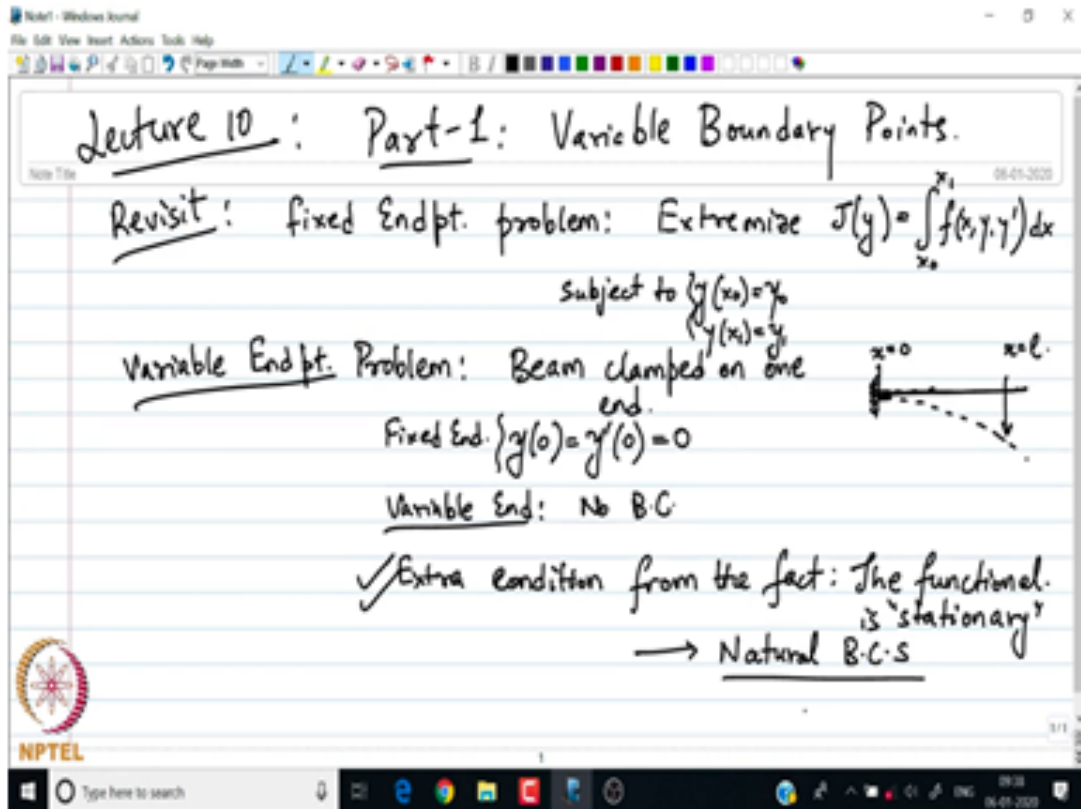 Note1 - Windows Journal
File Edit View Insert Actions Tools Help
Page Width
B I
Lecture 10 : Part-1: Variable Boundary Points.
Note Title
06-01-2020
Revisit: fixed Endpt. problem: Extremize J(y) = ∫_{x₀}^{x₁} f(x, y, y') dx
subject to { y(x₀) = y₀
{ y(x₁) = y₁
Variable Endpt. Problem: Beam clamped on one
end.
x=0 x=l.
Fixed End. } y(0) = y'(0) = 0
Variable End: No B.C.
✓ Extra condition from the fact: The functional.
is "stationary"
→ Natural B.C.S
1/1
NPTEL
1
Type here to search
ENG
09:38
06-01-2020